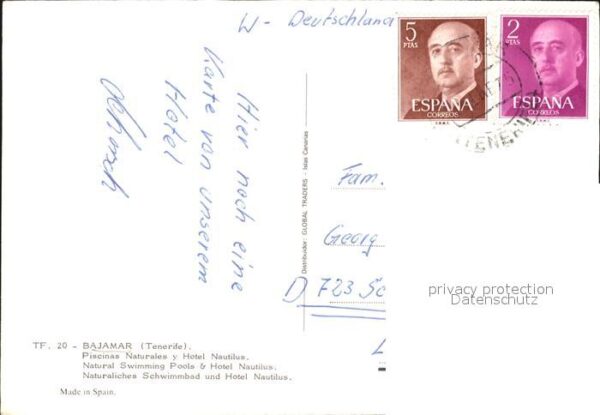 W - Deutschland
5
PTAS
ESPAÑA
CORREOS
2
PTAS
ESPAÑA
CORREOS
TENERIF
Hier noch eine
Karte von unserem
Hotel
Distribuidor: GLOBAL TRADERS - Islas Canarias
Fam.
Georg
D 723 Sc
privacy protection
Datenschutz
TF. 20 - BAJAMAR (Tenerife).
Piscinas Naturales y Hotel Nautilus.
Natural Swimming Pools & Hotel Nautilus.
Naturaliches Schwimmbad und Hotel Nautilus.
Made in Spain.